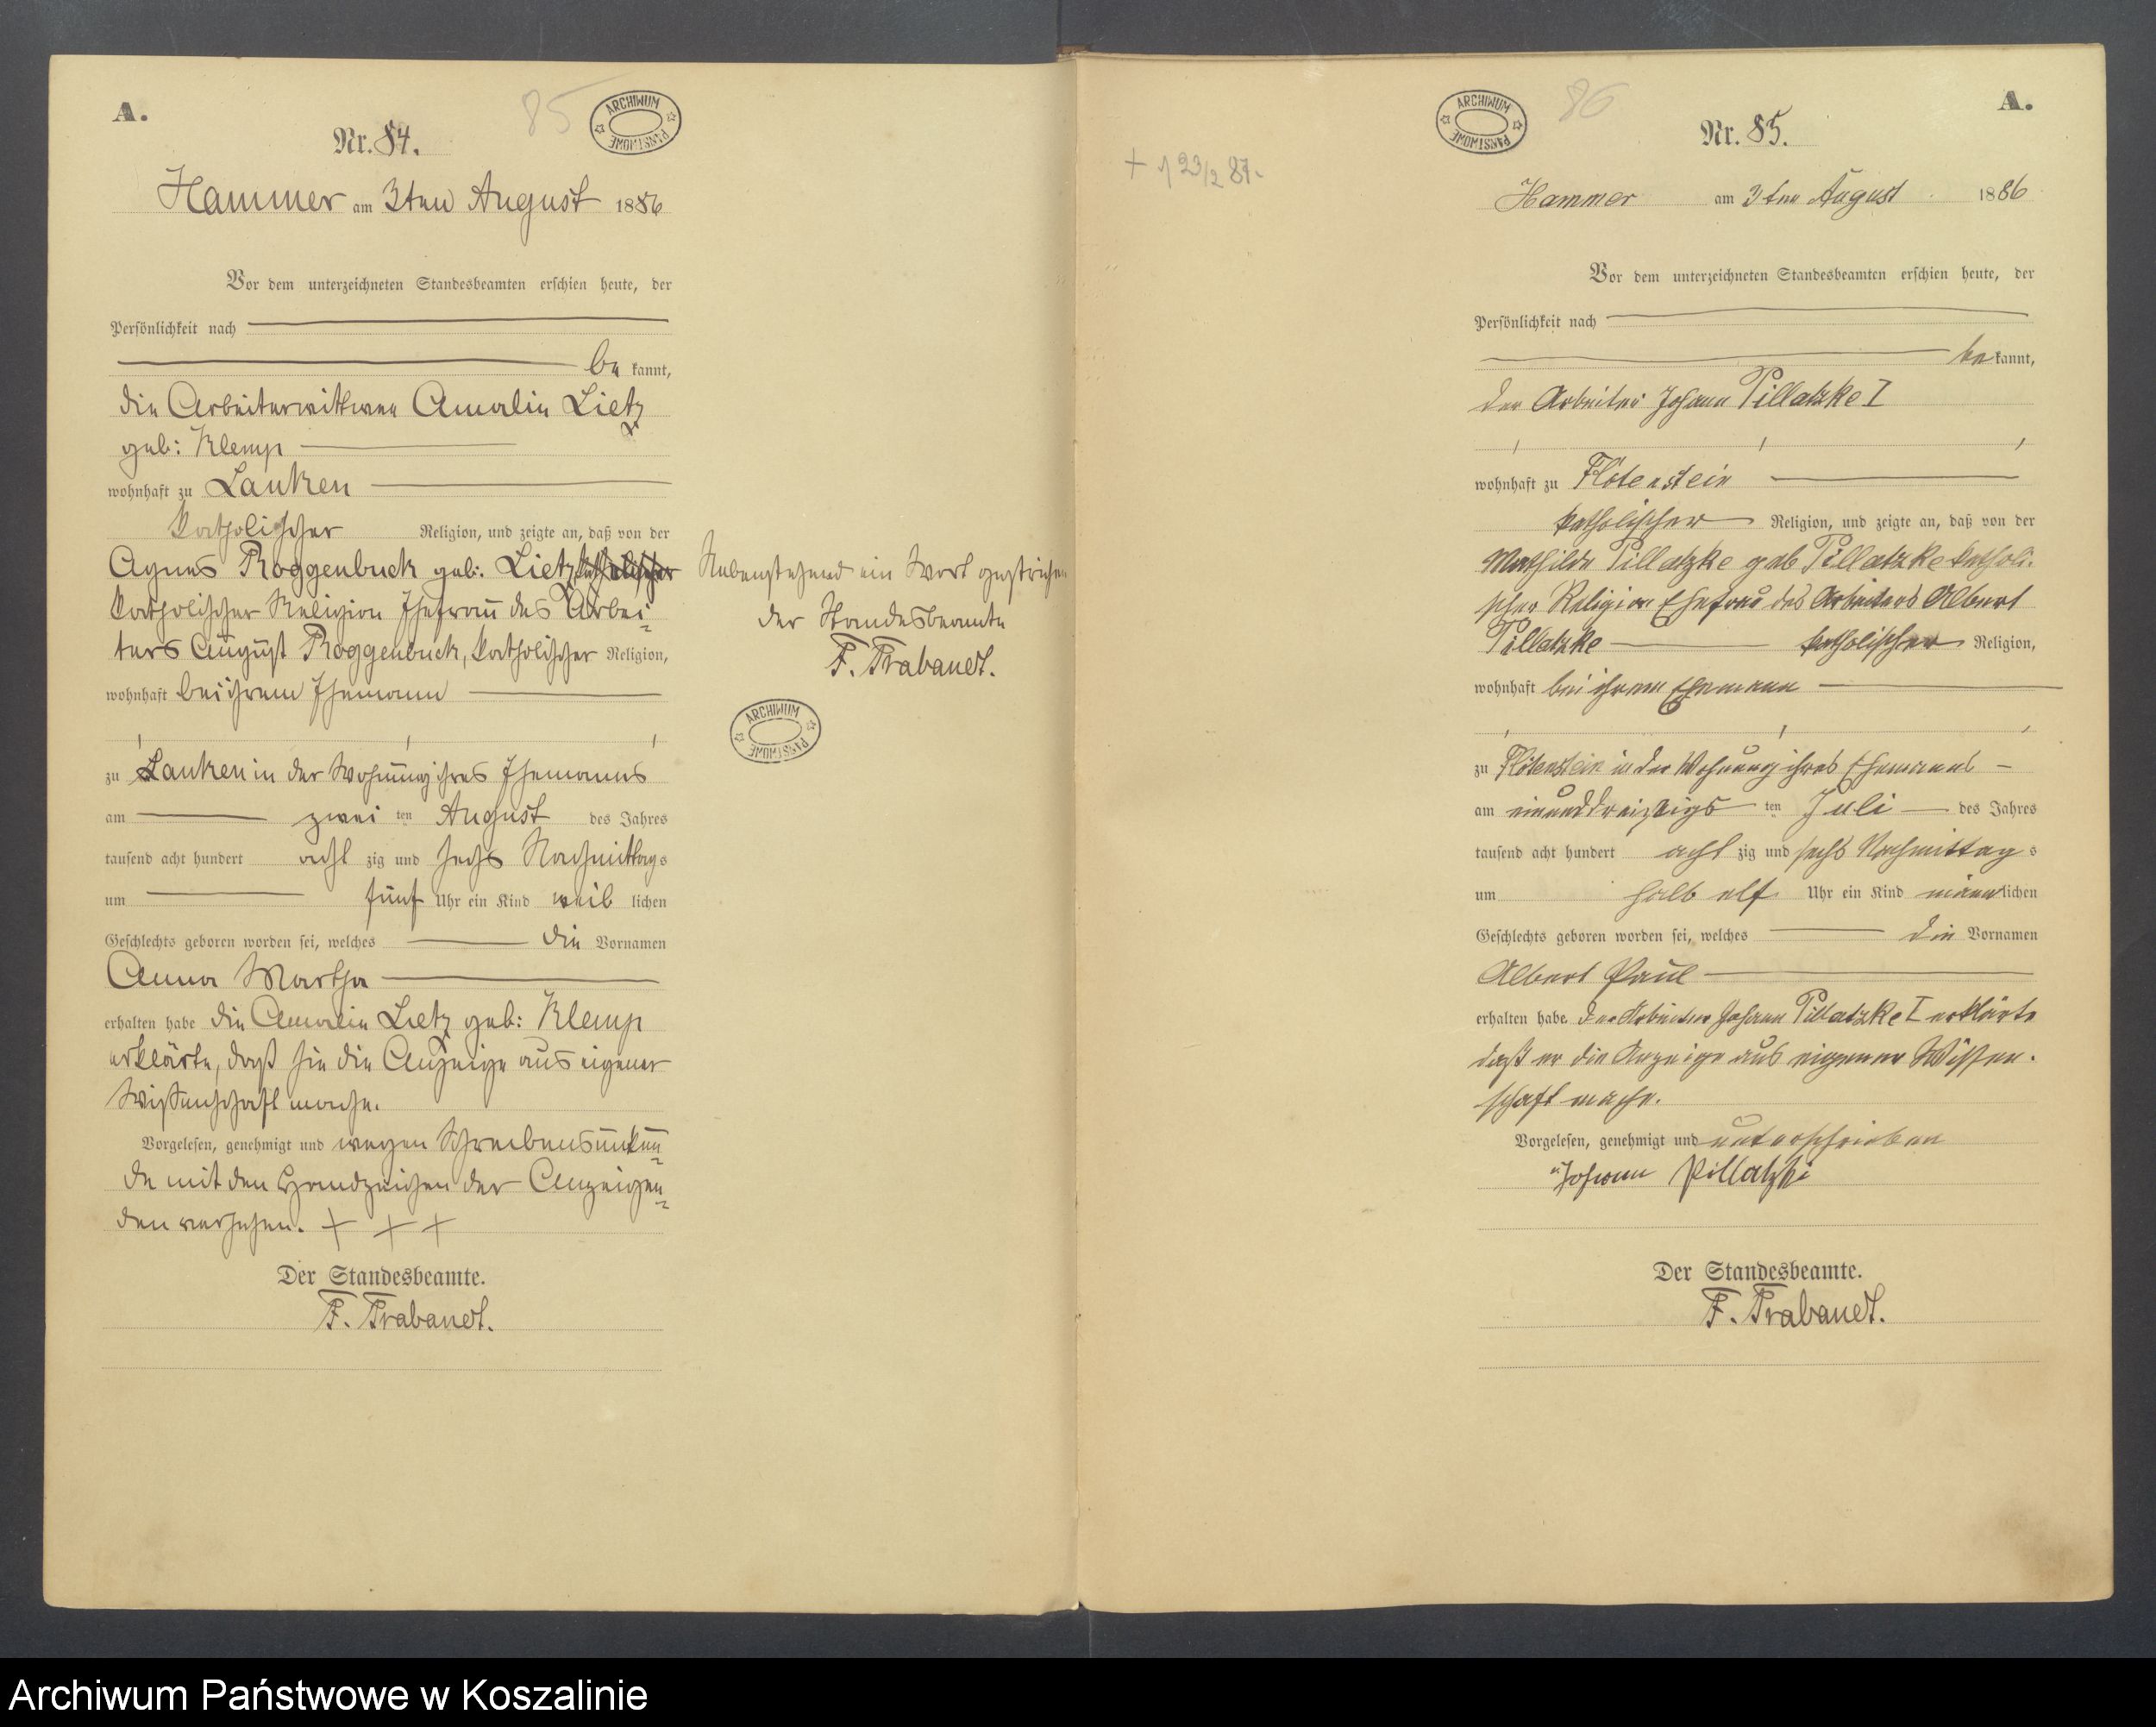 A.
85
ARCHIWUM PAŃSTWOWE
Nr. 84.
Hammer am 3ten August 1886
Vor dem unterzeichneten Standesbeamten erschien heute, der
Persönlichkeit nach
be kannt,
die Arbeiterwittwe Amalie Lietz
geb: Klemp
wohnhaft zu Lanken
katholischer Religion, und zeigte an, daß von der
Agnes Roggenbuck geb. Lietz katholischer
katholischer Religion Ehefrau des Arbei-
ters August Roggenbuck, katholischer Religion,
wohnhaft bei ihrem Ehemann
zu Lanken in der Wohnung ihres Ehemanns
am zwei ten August des Jahres
tausend acht hundert acht zig und sechs Nachmittags
um fünf Uhr ein Kind weib lichen
Geschlechts geboren worden sei, welches die Vornamen
Anna Martha
erhalten habe die Amalie Lietz geb: Klemp
erklärte, daß sie die Anzeige aus eigener
Wissenschaft mache.
Vorgelesen, genehmigt und wegen Schreibensunkun-
de mit den Handzeichen der Anzeigen-
den versehen. + + +
Der Standesbeamte.
F. Trabandt.
Nebenstehend ein Wort gestrichen
der Standesbeamte
F. Trabandt.
ARCHIWUM PAŃSTWOWE
+ 1 23/2 87.
ARCHIWUM PAŃSTWOWE
86
A.
Nr. 85.
Hammer am 3ten August 1886
Vor dem unterzeichneten Standesbeamten erschien heute, der
Persönlichkeit nach
be kannt,
der Arbeiter Johann Pillatzke I
wohnhaft zu Flötenstein
katholischer Religion, und zeigte an, daß von der
Mathilde Pillatzke geb Pillatzke katholi-
scher Religion Ehefrau des Arbeiters Albert
Pillatzke katholischer Religion,
wohnhaft bei ihrem Ehemann
zu Flötenstein in der Wohnung ihres Ehemanns
am einunddreizigs ten Juli des Jahres
tausend acht hundert acht zig und sechs Nachmittag s
um halb elf Uhr ein Kind männlichen
Geschlechts geboren worden sei, welches die Vornamen
Albert Paul
erhalten habe der Arbeiter Johann Pillatzke I erklärte
daß er die Anzeige aus eigener Wissen-
schaft mache.
Vorgelesen, genehmigt und unterschrieben
Johann Pillatzki
Der Standesbeamte.
F. Trabandt.
Archiwum Państwowe w Koszalinie